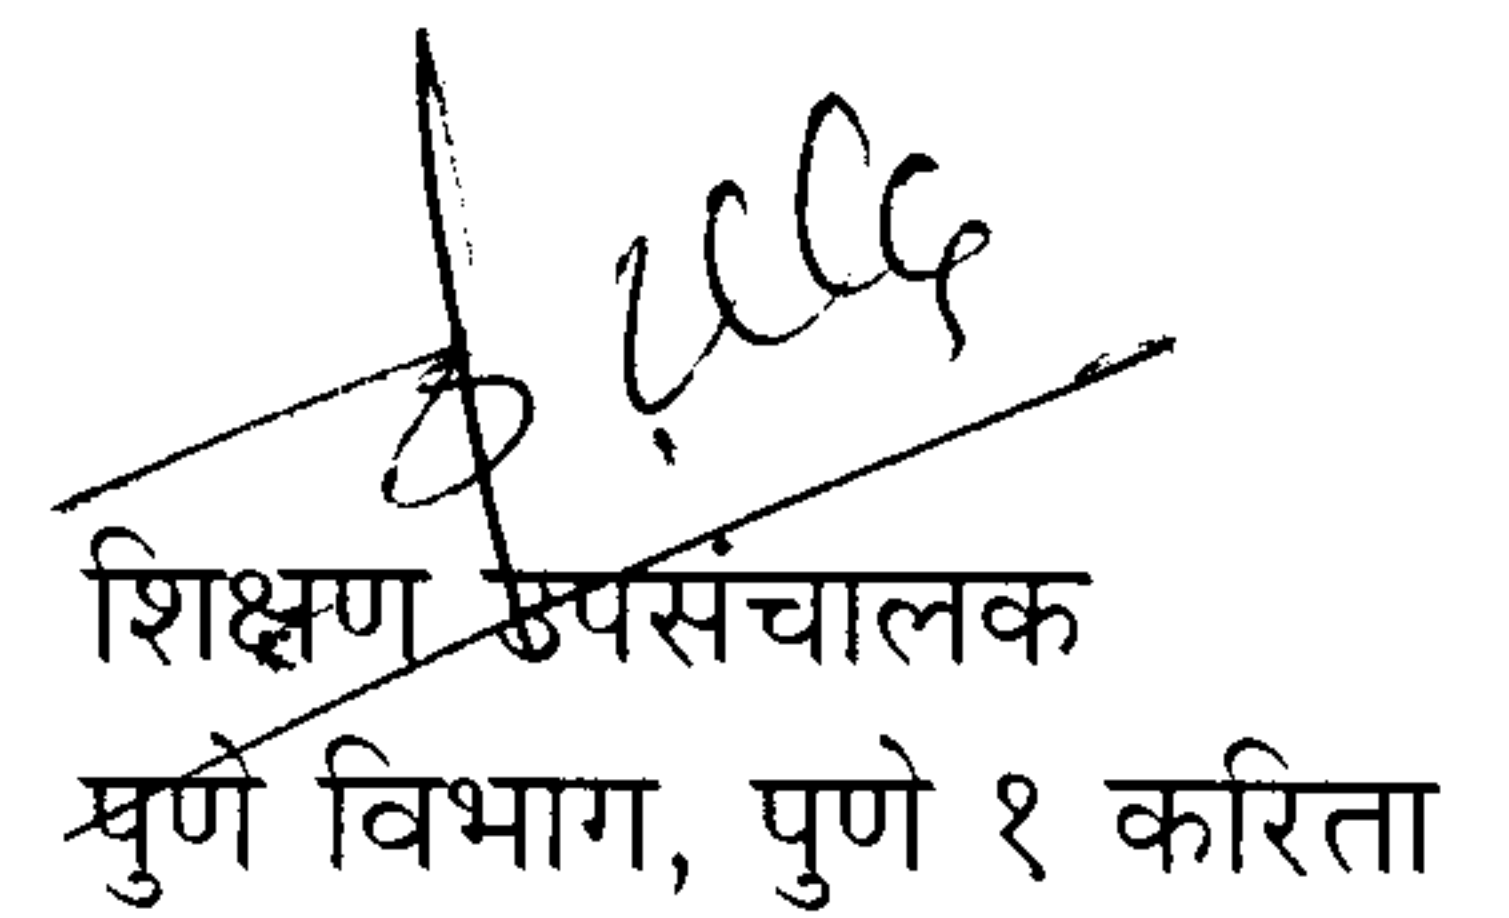 शिक्षण उपसंचालक
पुणे विभाग, पुणे १ करिता